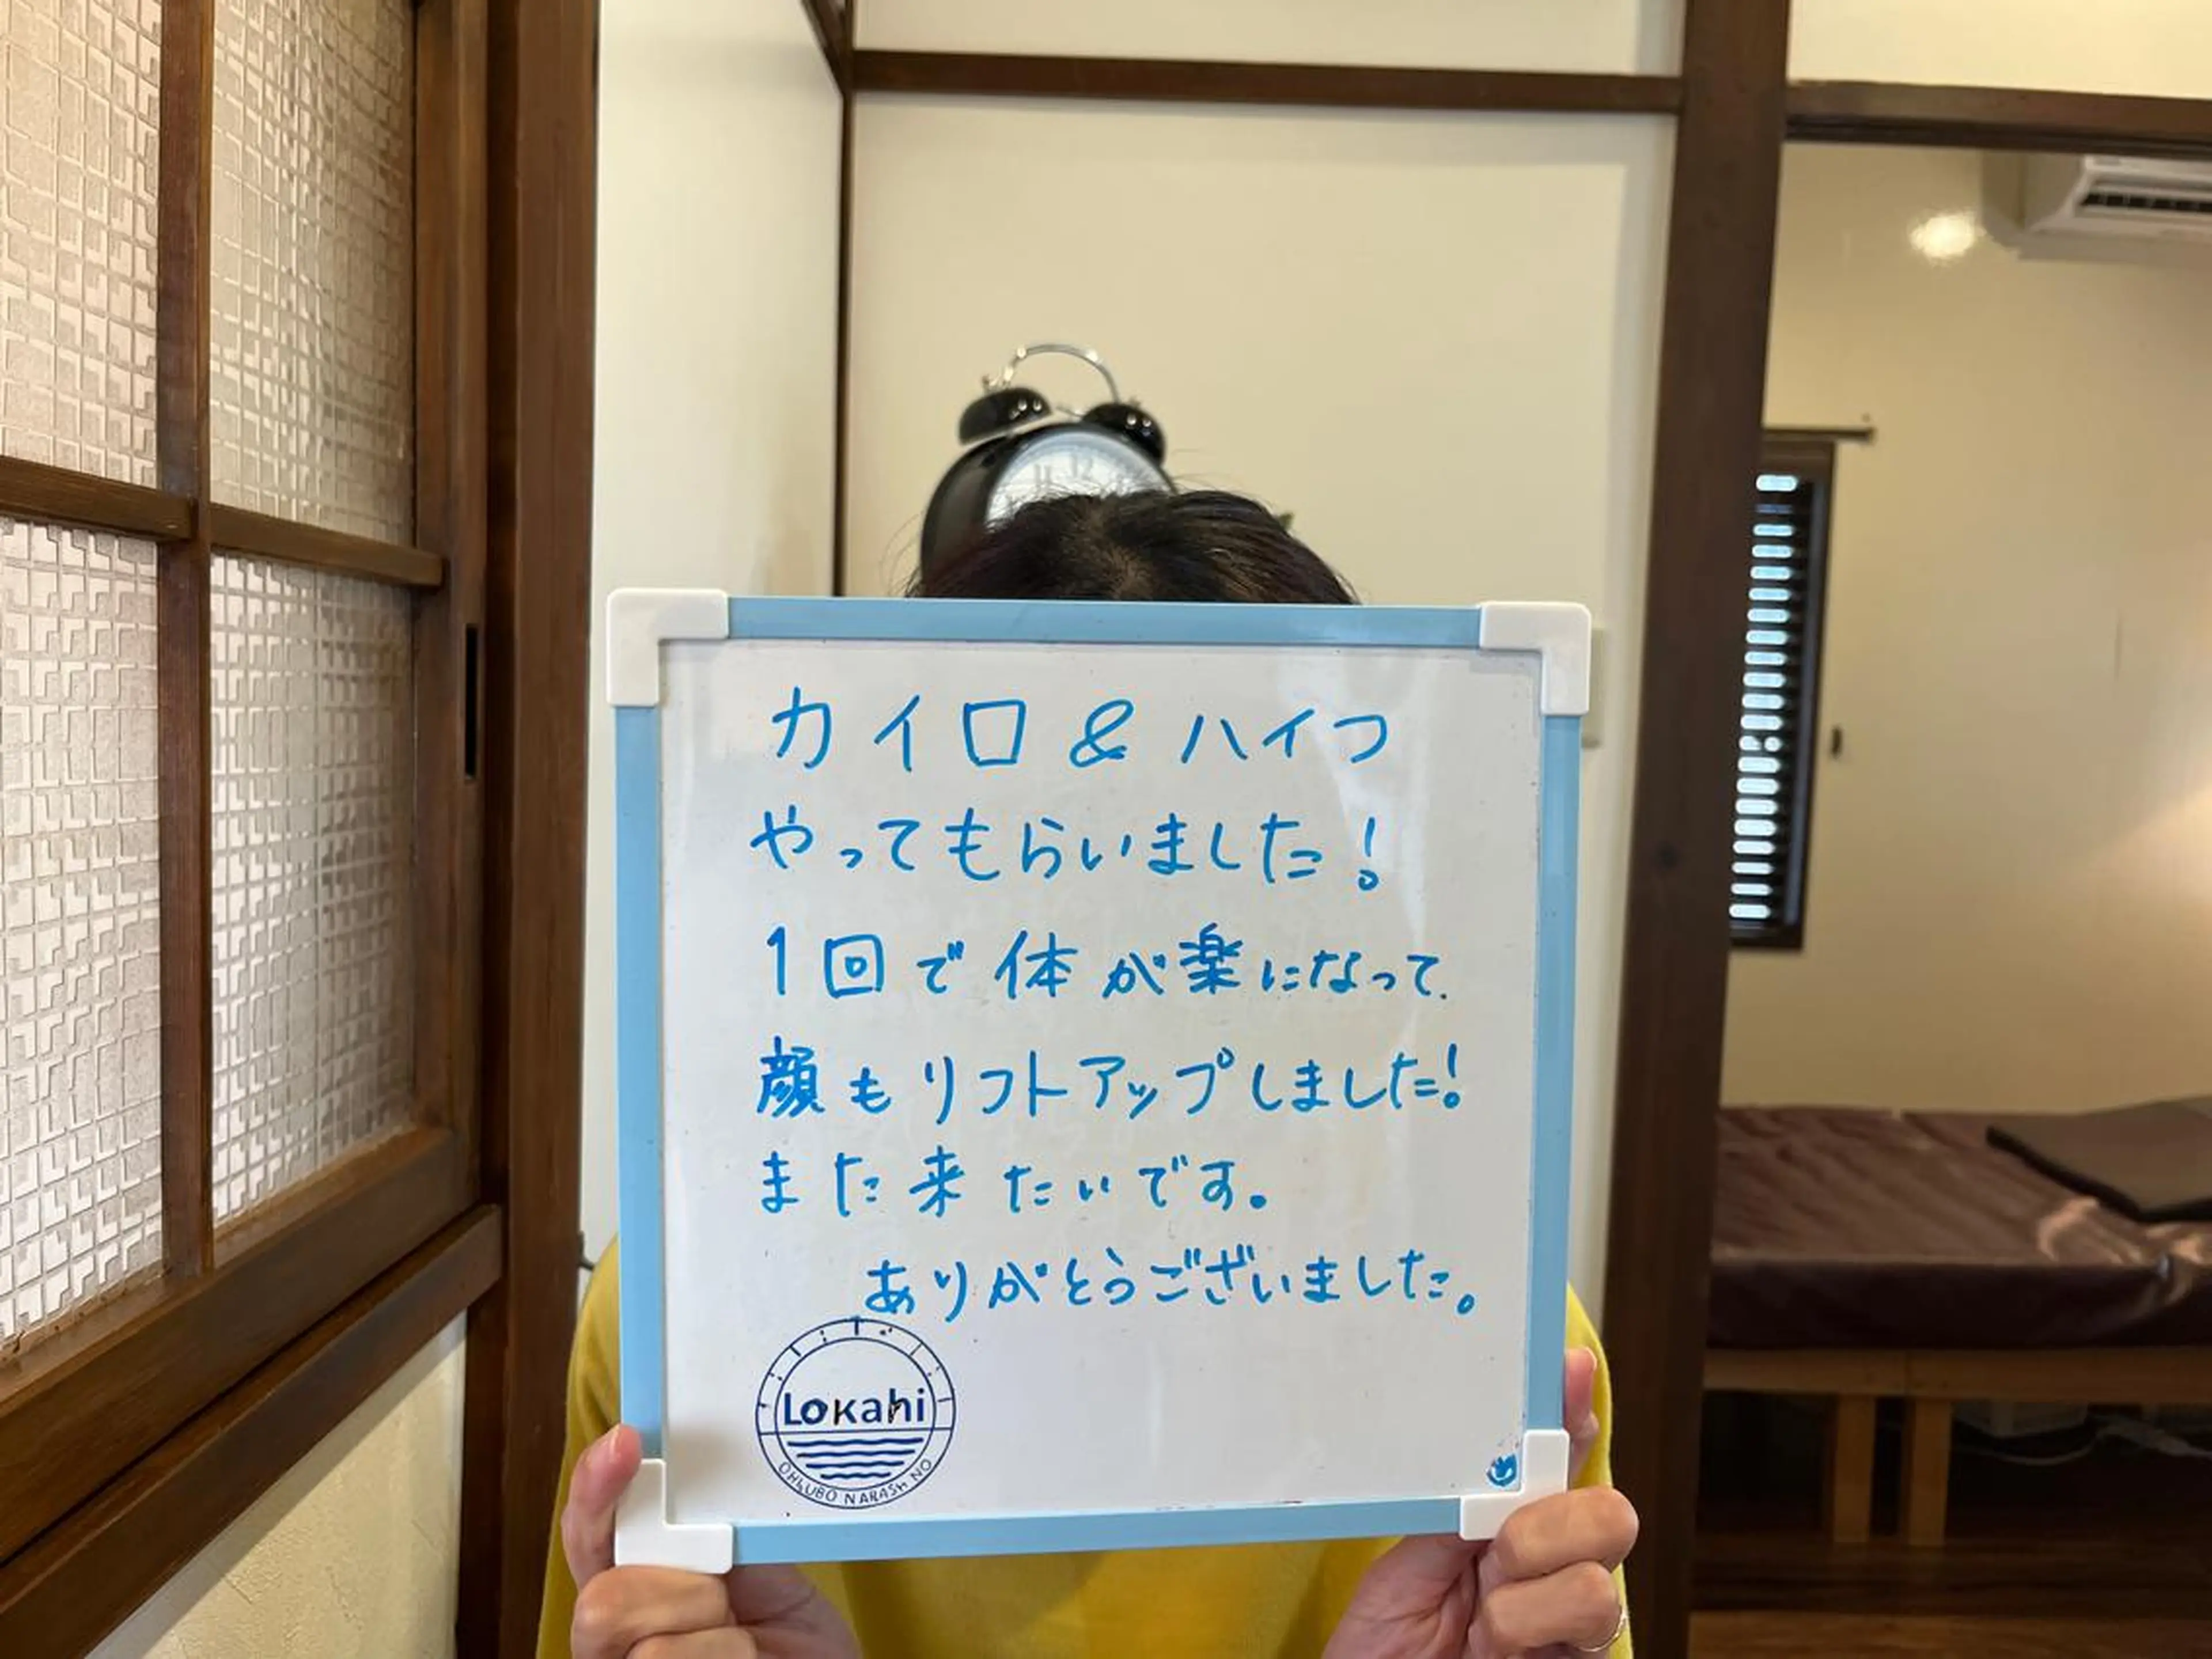 カイロ & ハイフ
やってもらいました!
1回で体が楽になって、
顔もリフトアップしました!
また来たいです。
ありがとうございました。
Lokahi
OHKUBO NARASHINO